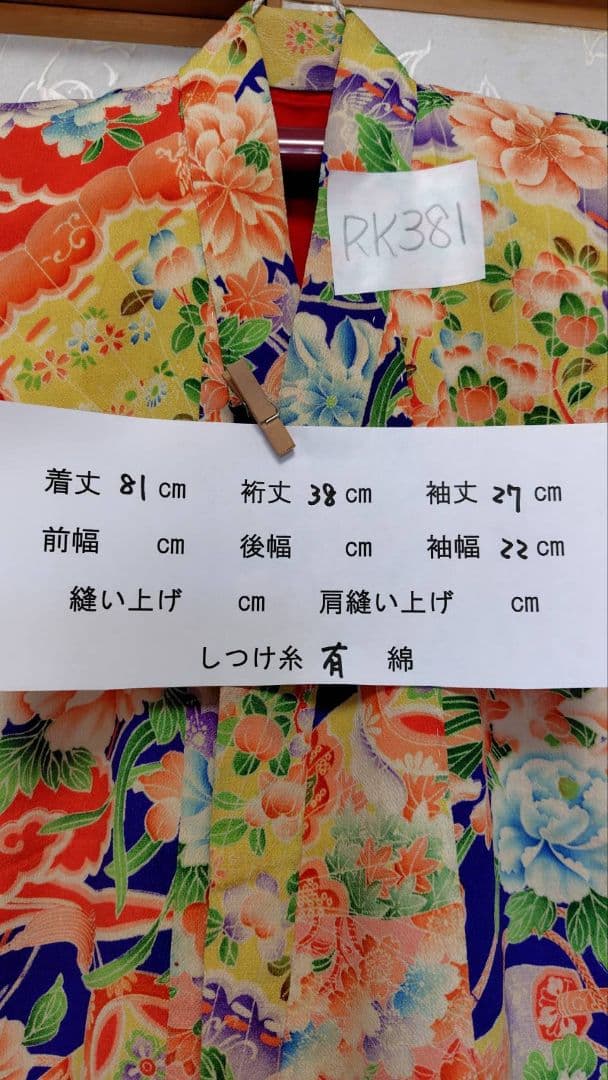 RK381
着丈 81 cm 裄丈 38 cm 袖丈 27 cm
前幅 cm 後幅 cm 袖幅 22 cm
縫い上げ cm 肩縫い上げ cm
しつけ糸 有 綿